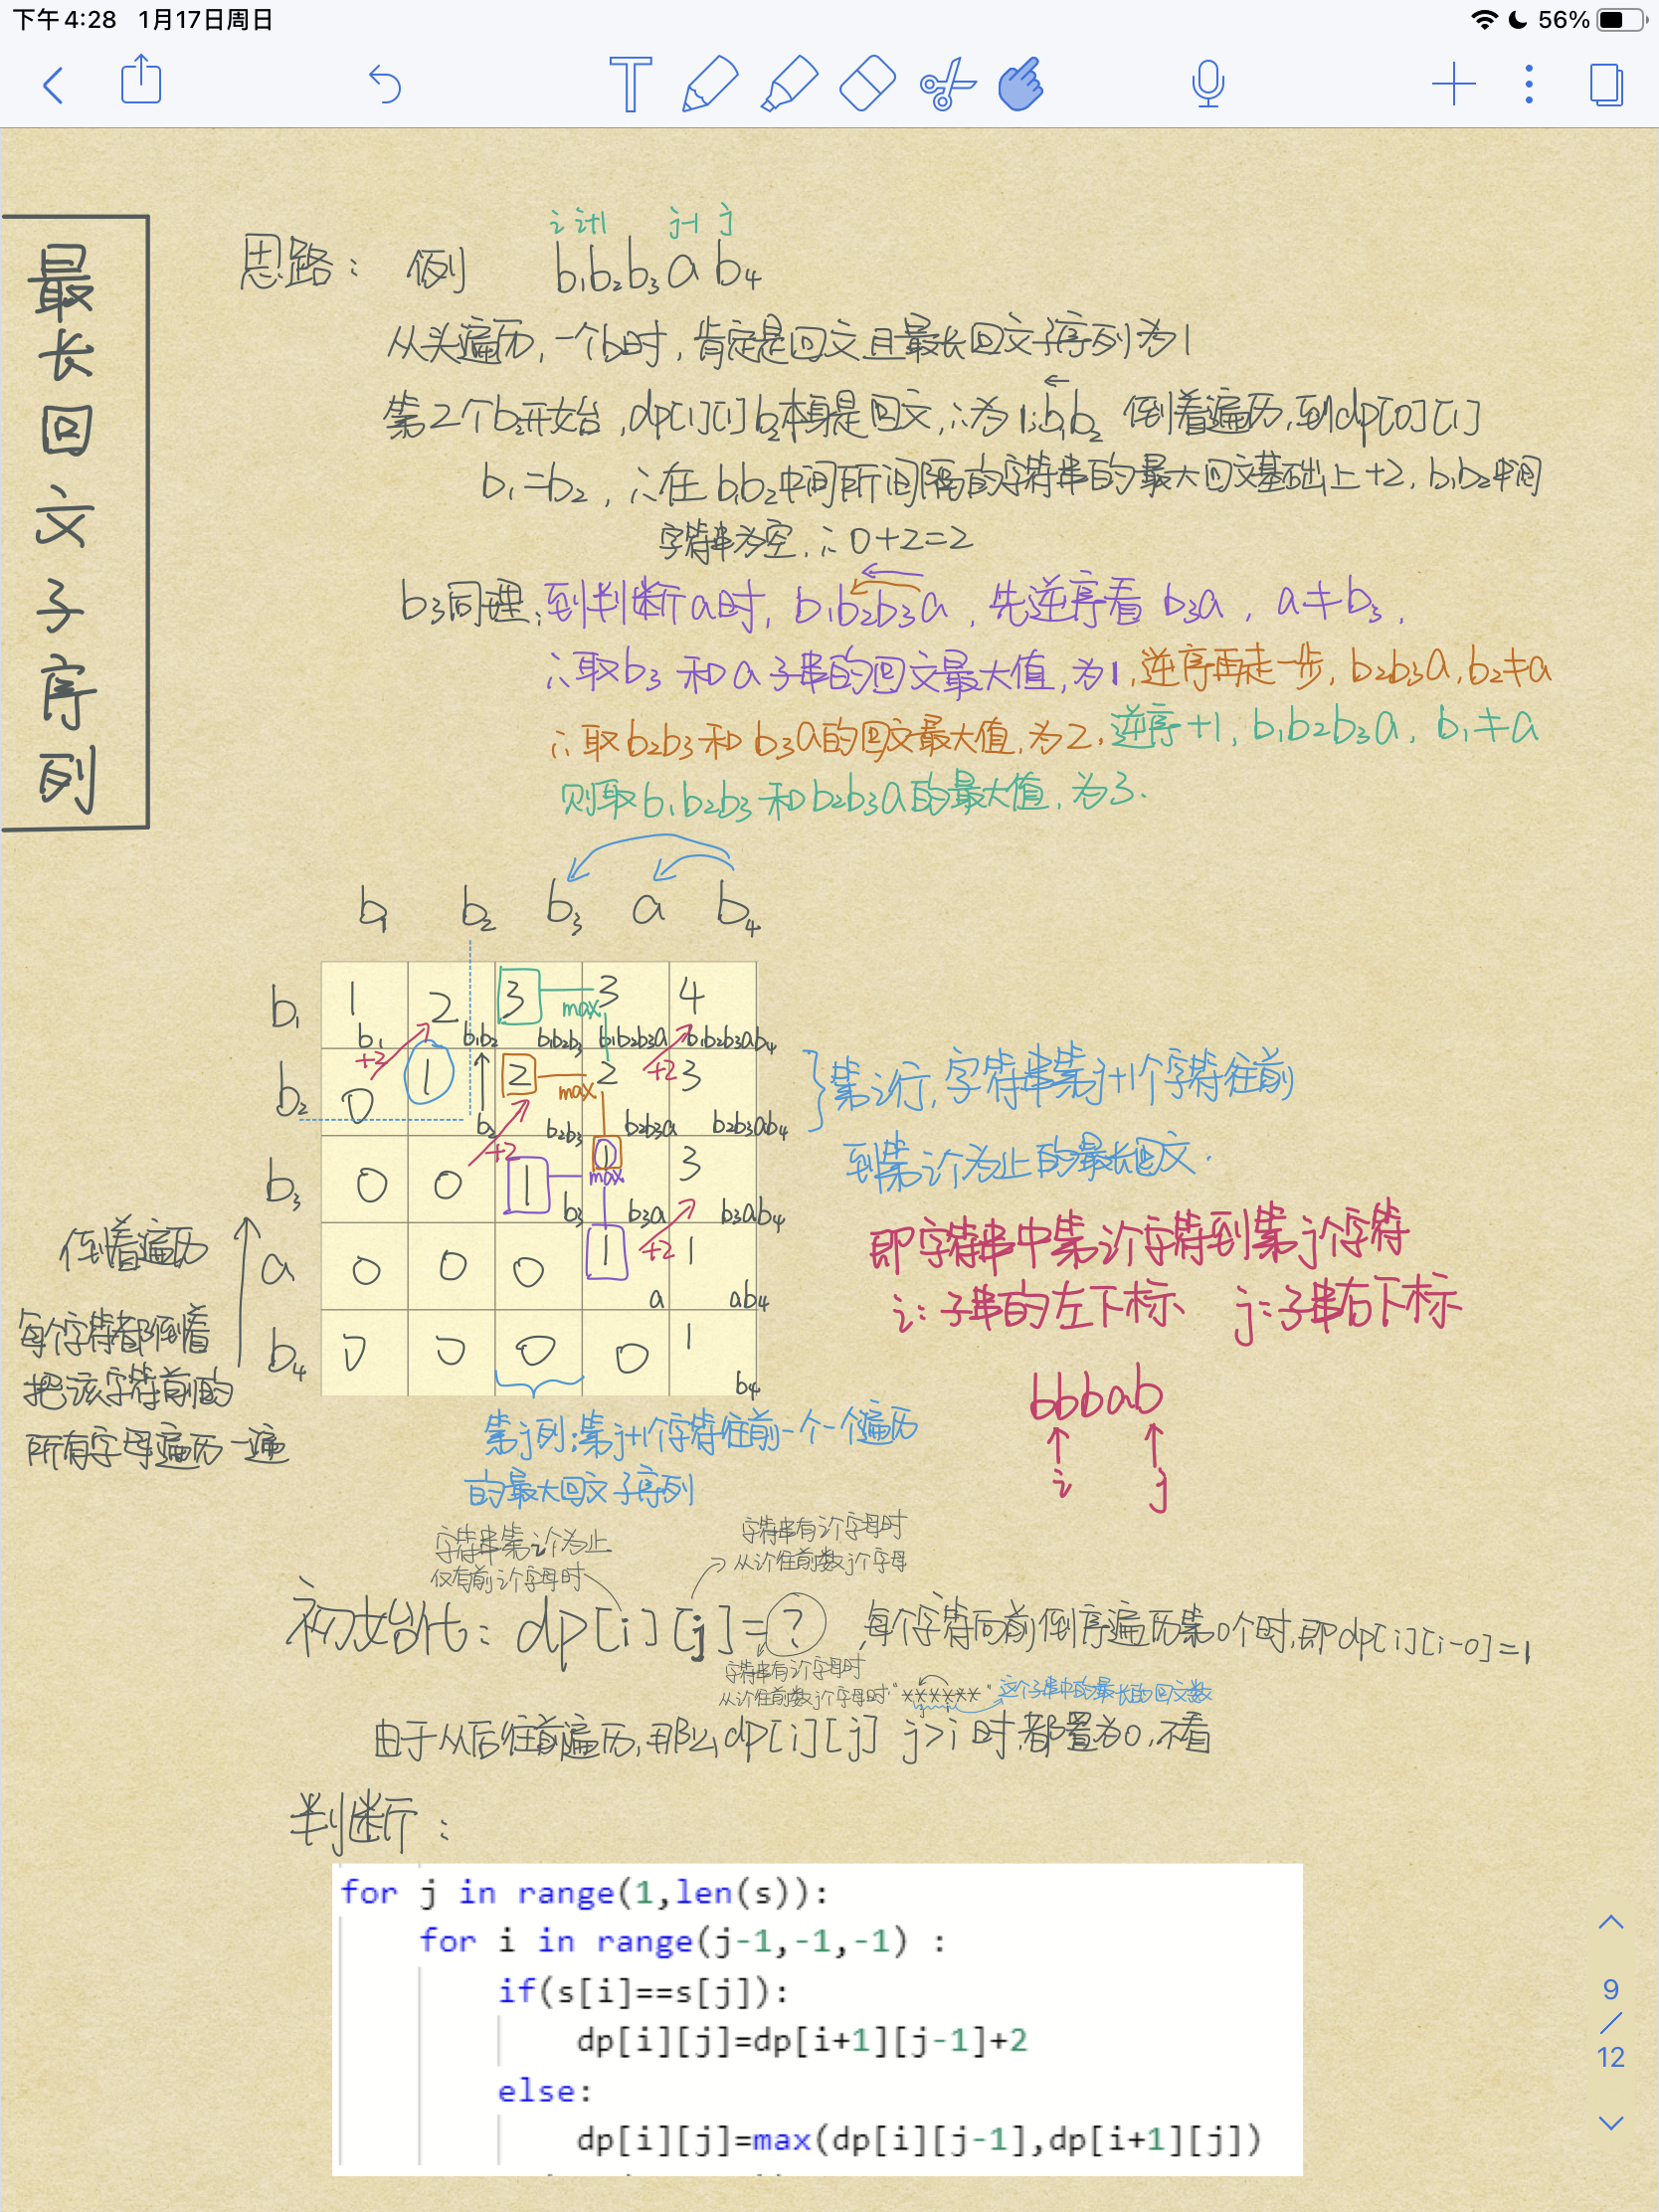 下午4:28 1月17日周日
56%
T
最长回文子序列
i i+1 j-1 j
思路： 例 b₁b₂b₃ab₄
从头遍历，一个b时，肯定是回文且最长回文子序列为1
第2个b₂开始，dp[1][1] b₂本身是回文，∴为1；b₁b₂ 倒着遍历，到dp[0][1]
b₁=b₂，∴在b₁b₂中间所间隔的字符串的最大回文基础上+2，b₁b₂中间
字符串为空，∴0+2=2
b₃同理；到判断a时，b₁b₂b₃a，先逆序看b₃a，a≠b₃，
∴取b₃和a子串的回文最大值，为1，逆序再走一步，b₂b₃a，b₂≠a
∴取b₂b₃和b₃a的回文最大值，为2，逆序+1，b₁b₂b₃a，b₁≠a
则取b₁b₂b₃和b₂b₃a的最大值，为3.
b₁ b₂ b₃ a b₄
b₁ 1 2 3 max 3 4
b₁ b₁b₂ b₁b₂b₃ b₁b₂b₃a b₁b₂b₃ab₄
+2 +2
b₂ 0 1 2 max 2 3
b₂ b₂b₃ b₂b₃a b₂b₃ab₄
+2
b₃ 0 0 1 max 1 3
b₃ b₃a b₃ab₄
+2
a 0 0 0 1 1
a ab₄
b₄ 0 0 0 0 1
b₄
第i行，字符串第j+1个字符往前
到第i个为止的最长回文.
即字符串中第i个字符到第j个字符
i：子串的左下标、 j：子串右下标
bbbab
i j
倒着遍历
每个字符都倒着
把该字符前的
所有字母遍历一遍
第j列：第j+1个字符往前一个一个遍历
的最大回文子序列
字符串第i个为止
仅有前i个字母时
字符串有i个字母时
从i往前数j个字母
初始化：dp[i][j]=? ，每个字符向前倒序遍历第0个时，即dp[i][i-0]=1
字符串有i个字母时
从i往前数j个字母时"××××××" 这个子串中的最长的回文数
由于从后往前遍历，那么dp[i][j] j>i时，都置为0，不看
判断：
for j in range(1,len(s)):
for i in range(j-1,-1,-1) :
if(s[i]==s[j]):
dp[i][j]=dp[i+1][j-1]+2
else:
dp[i][j]=max(dp[i][j-1],dp[i+1][j])
9
/
12